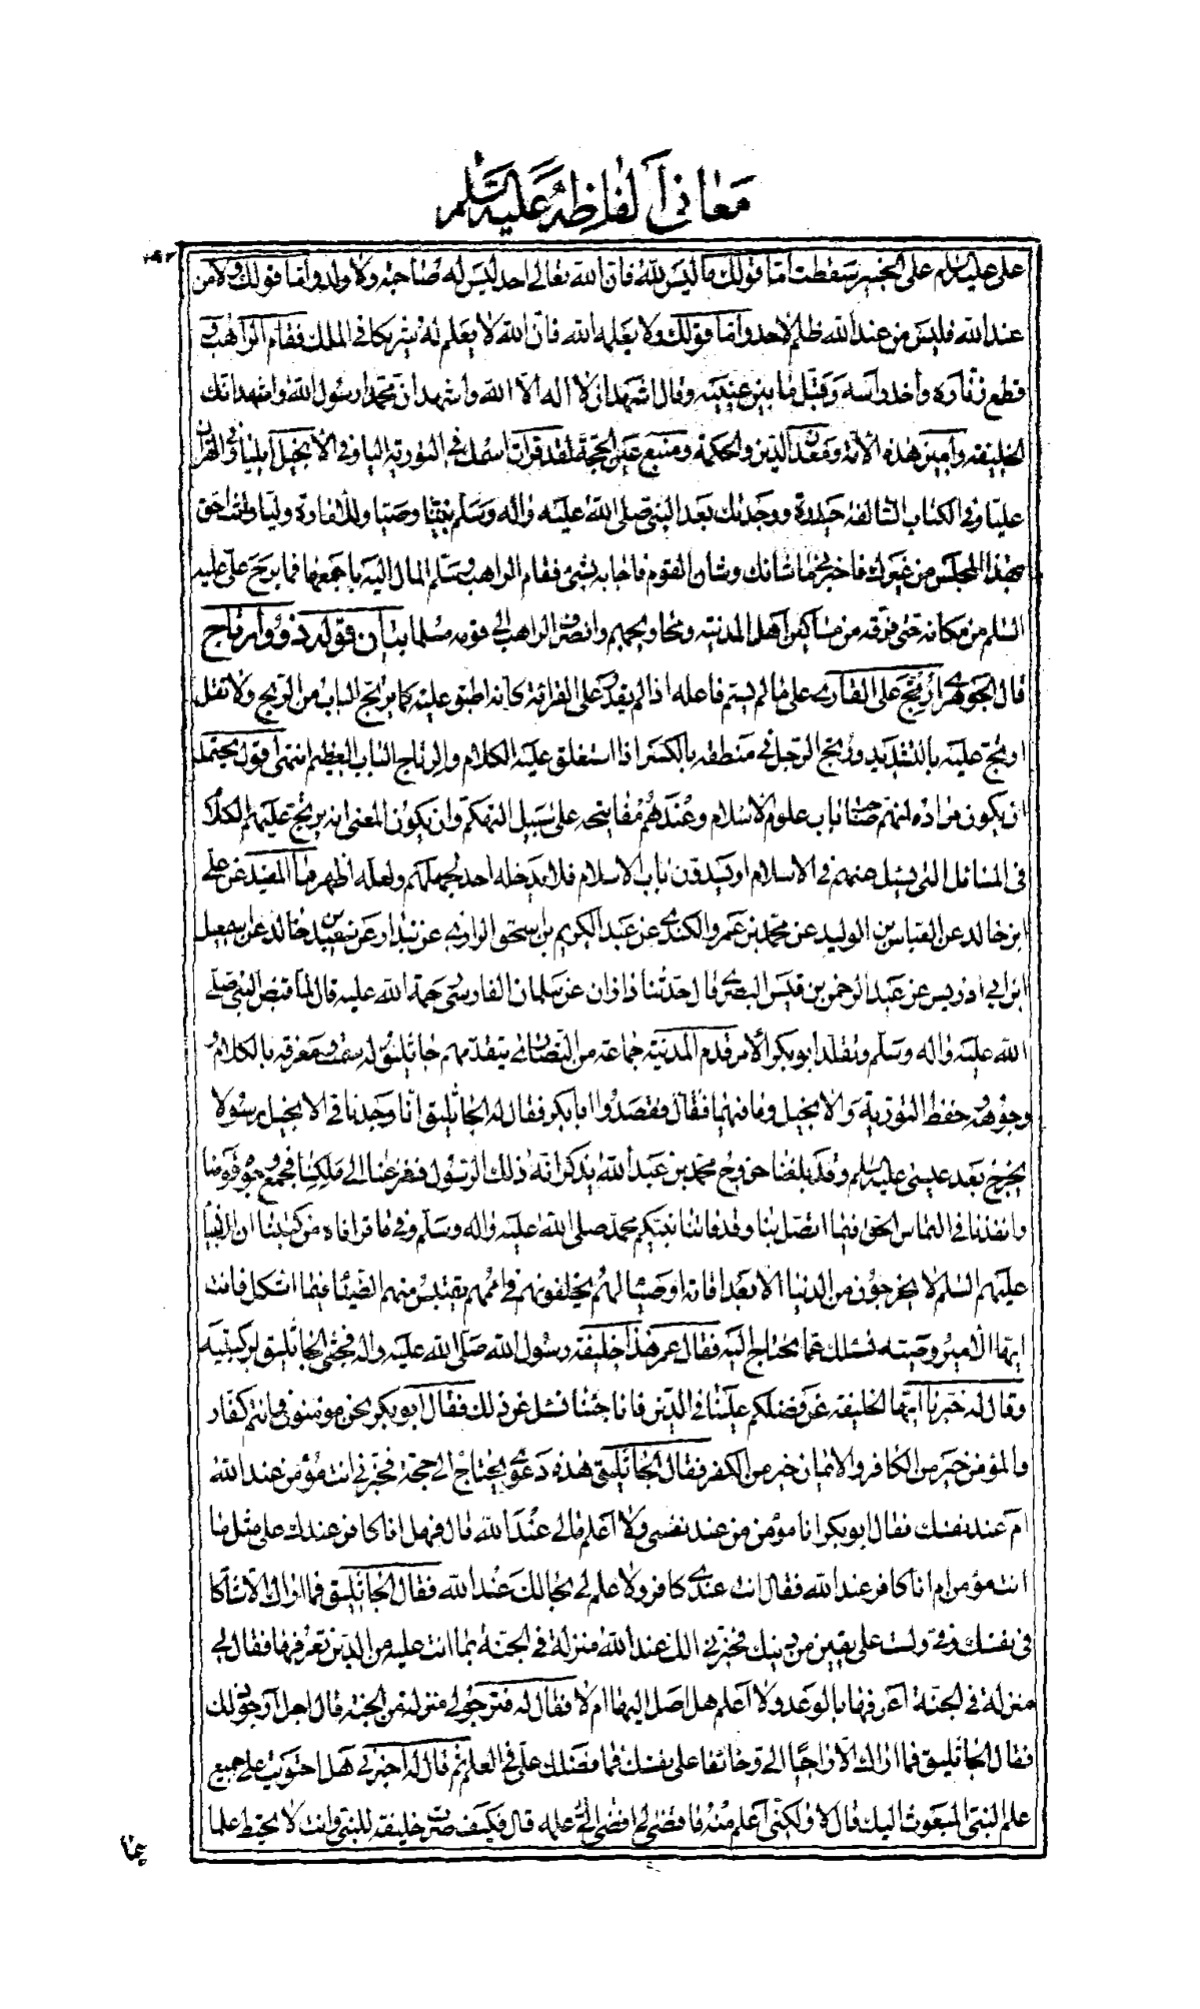 معاني ألفاظه عليه السلم
على عليه السلم على الخبير سقطت اما قولك ما ليس لله فان الله تعالى احد ليس له صاحبة ولا ولد واما قولك ولا من
عند الله فليس من عند الله ظلم لاحد واما قولك ولا يعلمه الله فان الله لا يعلم له شريكا في الملك فقام الراهب و
قطع زناره وأخذ رأسه وقبل ما بين عينيه وقال اشهد ان لا اله الا الله واشهد ان محمدا رسول الله واشهد انك
الخليفة وأمين هذه الأمة ومعدن الدين والحكمة ومنبع عين الحجة لقد قرات اسمك في التورية اليا وفي الأنجيل ايليا وفي القران
عليا وفي الكتاب السالفة حيدرة ووجدتك بعد النبي صلى الله عليه واله وسلم نبينا وصيا وللامارة وليا وانت احق
بهذا المجلس من غيرك فاخبرني ما شانك وشان القوم فاجابه بشئ فقام الراهب وسلم المال اليه باجمعه فما برح على عليه
السلم من مكانه حتى فرقه من مساكين أهل المدينة ومحاويجهم وانصرف الراهب الى قومه مسلما بيان قوله ذووا رتاج
قال الجوهري ارتج على القاري على ما لم يسم فاعله اذا لم يقدر على القرائة كانه اطبق عليه كما يرتج الباب من الرتج ولا تقل
ارتج عليه بالتشديد ورتج الرجل في منطقه بالكسر اذا استغلق عليه الكلام والرتاج الباب العظيم انتهى اقول يحتمل
ان يكون مراده انهم صاروا باب علوم الاسلام وعندهم مفاتيحه على سبيل التهكم وان يكون المعنى انه يرتج عليهم الكلام
في المسائل التي يسئل عنهم في الاسلام او يسدون باب الاسلام فلا يدخله احد لجهلهم ولعله أظهر ما المفيد عن على
ابن خالد عن العباس بن الوليد عن محمد بن عمرو الكندي عن عبد الكريم بن اسحق الرازي عن بندار عن سعيد بن خالد عن اسمعيل
ابن ابي ادريس عن عبد الرحمن بن قيس البصري قال حدثنا ذاذان عن سلمان الفارسي رحمة الله عليه قال لما قبض النبي صلى
الله عليه واله وسلم وتقلد ابو بكر الأمر قدم المدينة جماعة من النصارى يتقدمهم جاثليق له سمت ومعرفة بالكلام و
وجوهه وحفظ التورية والانجيل وما فيهما فقال فقصدوا ابا بكر فقال له الجاثليق انا وجدنا في الانجيل رسولا
يخرج بعد عيسى عليه السلم وقد بلغنا خروج محمد بن عبد الله يذكر انه ذلك الرسول ففزعنا الى ملكنا فجمع وجوه قومنا
وانفذنا في التماس الحق فيما اتصل بنا وقد فاتنا نبيكم محمد صلى الله عليه واله وسلم وفي ما قراناه من كتبنا ان الانبياء
عليهم السلم لا يخرجون من الدنيا الا بعد اقامة اوصياء لهم يخلفونهم في اممهم يقتبس منهم الضياء فيما اشكل فانت
ايها الأمير وصيه لنسئلك عما نحتاج اليه فقال عمر هذا خليفة رسول الله صلى الله عليه واله فجثى الجاثليق لركبتيه
وقال له خبرنا ايها الخليفة عن فضلكم علينا في الدين فانا جئنا نسئل عن ذلك فقال ابو بكر نحن مؤمنون وانتم كفار
والمؤمن خير من الكافر والايمان خير من الكفر فقال الجاثليق هذه دعوى يحتاج الى حجة فخبرني انت مؤمن عند الله
ام عند نفسك فقال ابو بكر انا مؤمن من عند نفسي ولا أعلم ما لي عند الله قال فهل انا كافر عندك على مثل ما
انت مؤمن ام انا كافر عند الله فقال انت عندي كافر ولا علم لي بحالك عند الله فقال الجاثليق فما اراك الا شاكا
في نفسك وفي ولست على يقين من دينك فخبرني الك عند الله منزلة في الجنة بما انت عليه من الدين تعرفها فقال لي
منزلة في الجنة أعرفها بالوعد ولا أعلم هل اصل اليها ام لا فقال له فترجو لي منزلة من الجنة قال اجل ارجو ذلك
فقال الجاثليق فما اراك الا راجيا لي وخائفا على نفسك فما فضلك علي في العلم ثم قال له اخبرني هل احتويت على جميع
علم النبي المبعوث اليك قال لا ولكني أعلم منه ما قضى لي افضى الي علمه قال فكيف صرت خليفة للنبي وانت لا تحيط علما
بما